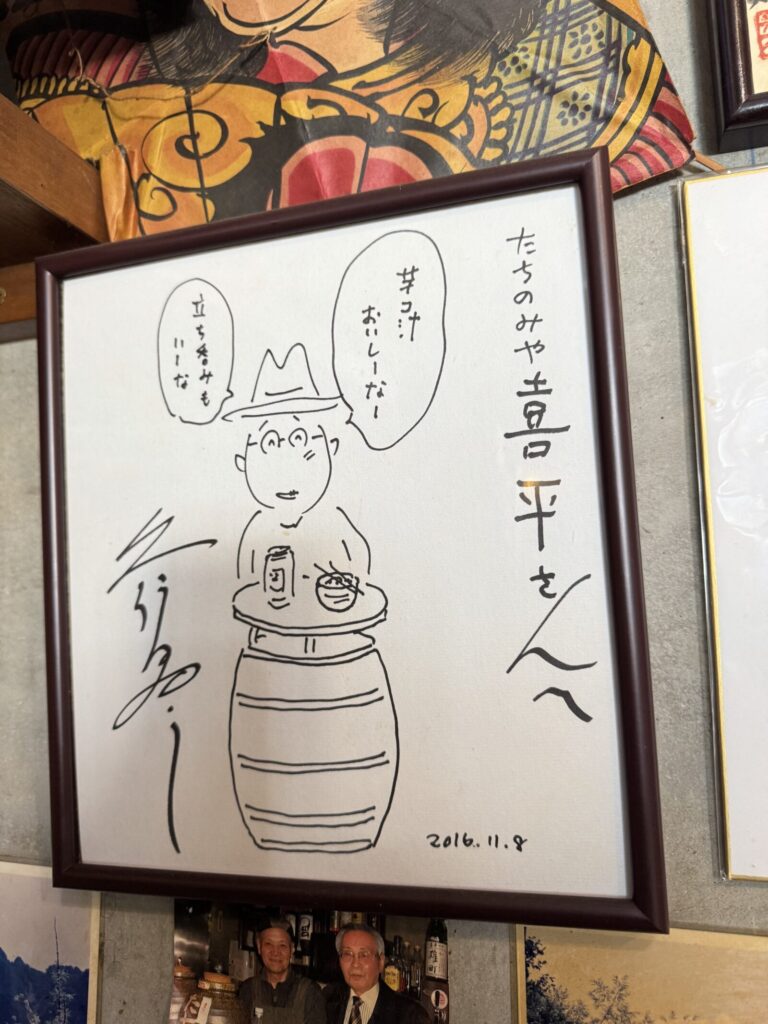 たちのみや喜平さんへ
芋コ汁
おいしーなー
立ち呑みも
いーな
2016.11.8